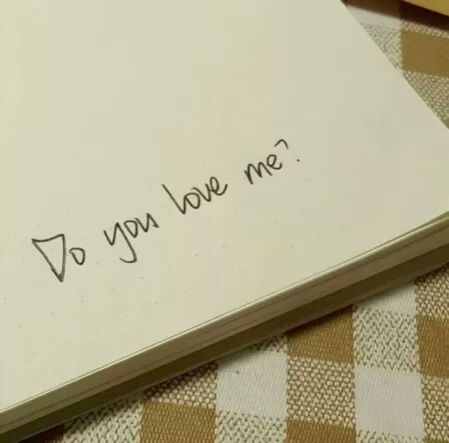 Do you love me?